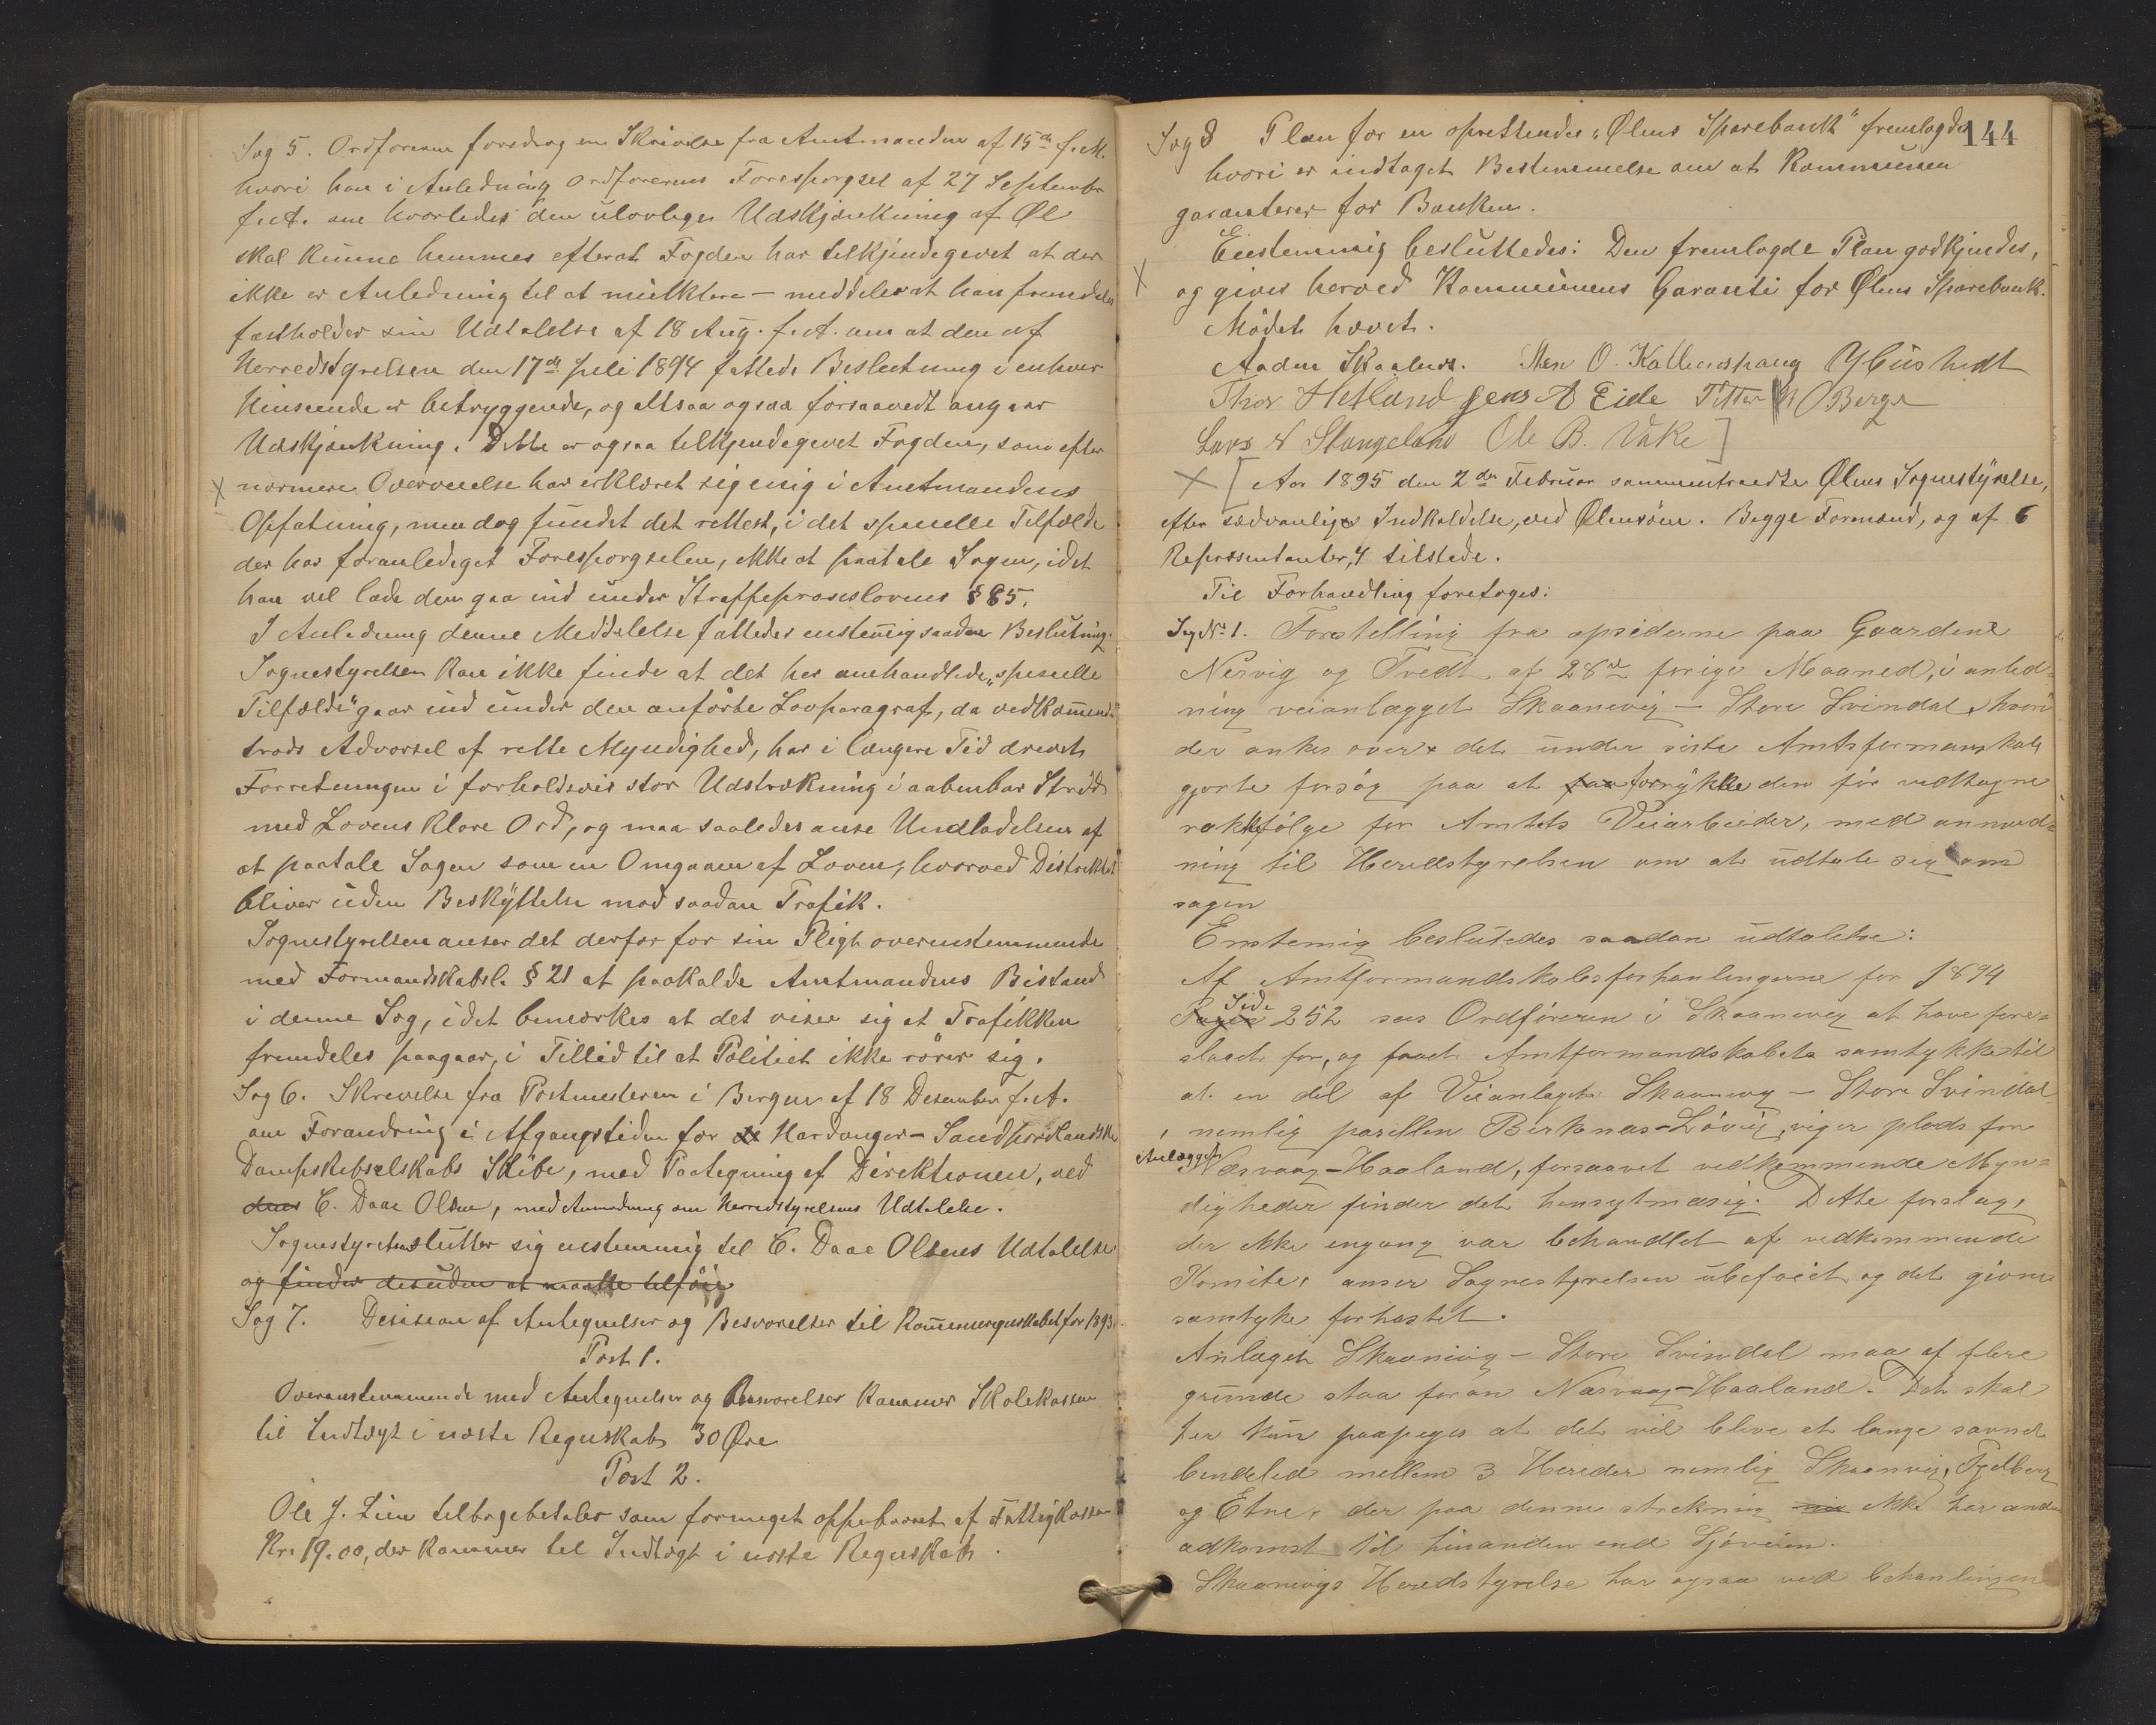 Sag 5. Ordføreren foredrog en Skrivelse fra Amtmanden af 15de f.M.
hvori han i Anledning Ordførerens Forespørgsel af 27 September
f.A. om hvorledes den ulovlige Udskjænkning af Øl
skal kunne hemmes efterat Fogden har tilkjendegivet at der
ikke er Anledning til at mulktere – meddeler at han fremdeles
fastholder sin Udtalelse af 18 Aug. f.A. om at den af
Herredstyrelsen den 17de Juli 1894 fattede Beslutning i enhver
Henseende er betryggende, og altsaa ogsaa forsaavidt angaar
Udskjænkning. Dette er ogsaa tilkjendegivet Fogden, som efter
nærmere Overveielse har erklæret sig enig i Amtmandens
Opfatning, men dog fundet det rettest, i det spesielle Tilfælde
der har foranlediget Forespørgselen, ikke at paatale Sagen, idet
han vil lade den gaa ind under Straffeproseslovens § 85.
I Anledning denne Meddelelse fattedes enstemig saadan Beslutning:
Sognestyrelsen kan ikke finde at det her omhandlede "spesielle
Tilfælde" gaar ind under den anførte Lovparagraf, da vedkomende
trods Advarsel af rette Myndighed, har i længere Tid drevet
Forretningen i forholdsvis stor Udstrækning i aabenbar Strid
med Lovens klare Ord, og maa saaledes anse Undladelsen af
at paatale Sagen som en Omgaaen af Loven, hvorved Distriktet
bliver uden Beskyttelse mod saadan Trafik.
Sognestyrelsen anser det derfor for sin Pligt overenstemmende
med Formandskabsl. § 21 at paakalde Amtmandens Bistand
i denne Sag, idet bemærkes at det viser sig at Trafikken
fremdeles paagaar, i Tillid til at Politiet ikke rører sig.
Sag 6. Skrivelse fra Postmesteren i Bergen af 18 Desember f.A.
om Forandring i Afgangstiden for Hardanger-Søndhordlandske
Dampskibselskabs Skibe, med Paategning af Direktionen, ved
dens C. Daae Olsen, med Anmodning om Herredstyrelsens Udtalelse.
Sognestyrelsen slutter sig enstemmig til C. Daae Olsens Udtalelse
og finder desuden at maatte tilføie
Sag 7. Desision af Antegnelser og Besvarelser til Komuneregnskabet for 1893.
Post 1.
Overenstemmende med Antegnelser og Besvarelser kommer Skolekassen
til Indtægt i næste Regnskab 30 Øre
Post 2.
Ole J. Lien tilbagebetaler som formeget oppebaaret af Fattigkassen
Kr. 19.00, der kommer til Indtægt i næste Regnskab.
144
Sag 8 Plan for en oprettendes "Ølens Sparebank" fremlagdes
hvori er indtaget Bestemmelse om at Kommunen
garanterer for Banken.
Enstemmig besluttedes: Den fremlagde Plan godkjendes,
X
og gives herved Kommunens Garanti for Ølens Sparebank.
Mødet hævet.
Aadne Skaalnes. Sten O. Kattenshaug
Thor Hetland Jens A Eide Petter N O Berge
Lars N Stangeland Ole B. Vake ]
X [ Aar 1895 den 2den Februar sammentraadte Ølens Sognestyrelse,
efter sædvanlige Indkaldelse, ved Ølensøen. Begge Formænd, og af 6
Repræsentanter, 4 tilstede.
Til Forhandling foretoges:
Sag No 1. Forestilling fra opsiderne paa Gaardene
Nesvig og Tvedt af 28de forige Maaned, i anled=
ning veianlægget Skaanevig – Store Svindal, hvori
der ankes over det under siste Amtsformanskab
gjorte forsøg paa at forrykke den før vedtagne
rækkefølge for Amtets Veiarbeider, med anmod=
ning til Heredstyrelsen om at udtale sig om
sagen
Enstemig beslutedes saadan udtalelse:
Af Amtformandskabsforhanlingerne for 1894
Side 252 sees Ordføreren i Skaanevig at have fore=
slaaet for, og faaet Amtformandskabets samtykke til
at en del af Veianlæget Skaanevig – Store Svindal
nemlig parsellen Berknæs-Løvig, viger plads for
Anlægget
Næsvaag-Haaland, forsaavet vedkommende Myn=
digheder finder det hensigtmæsig. Dette forslag,
der ikke engang var behandlet af vedkommende
Komite, anser Sognestyrelsen ubeføiet og det givne
samtyke forhastet.
Anlæget Skaanevig – Store Svindal maa af flere
grunde staa foran Næsvaag-Haaland. Det skal
her kun paapeges at det vil blive et længe savnet
bindeled mellem 3 Hereder nemlig Skaanevig, Fjelberg
og Etne, der paa denne strekning ikke har anden
adkomst til hinanden end Sjøveien.
Skaanevigs Heredstyrelse har ogsaa ved behanlingen